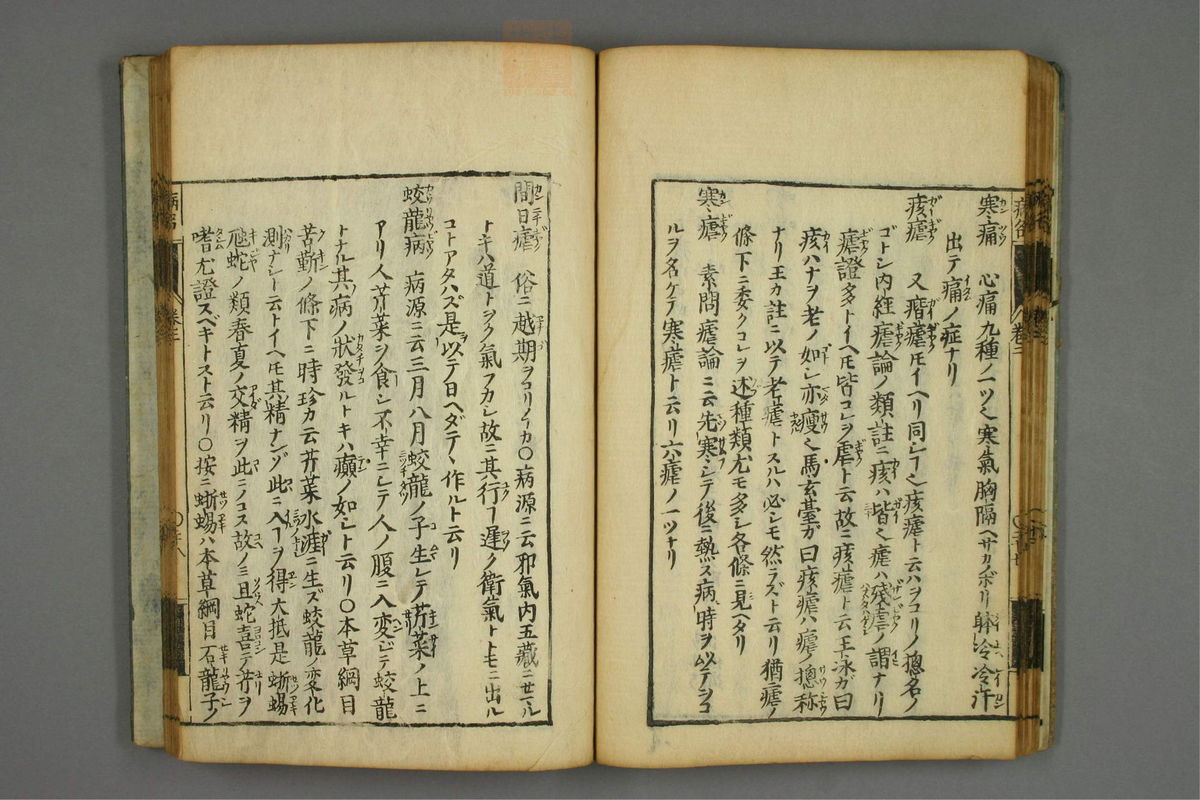 寒痛　心痛九種ノ一ツ也寒氣胸隔ヘサカノボリ躰冷冷汗
出テ痛ノ症ナリ
痎瘧　又㾬瘧トモイヘリ同シㄱ也痎瘧ト云ハヲコリノ摠名ノ
ゴトシ内経瘧論ノ類註ニ痎ハ皆也瘧ハ殘虐ノ謂ナリ
瘧證多トイヘドモ皆コレヲ虐ト云故ニ痎瘧ト云王冰ガ曰
痎ハナヲ老ノ如シ亦瘦也馬玄臺ガ曰痎瘧ハ瘧ノ摠称
ナリ王カ註ニ以テ老瘧トスルハ必シモ然ラズト云リ猶瘧ノ
條下ニ委クコレヲ述種類尤モ多シ各條ニ見ヘタリ
寒瘧　素問瘧論ニ云先寒シテ後ニ熱ス病時ヲ以テヲコ
ルヲ名ケテ寒瘧ト云リ六瘧ノ一ツナリ
間日瘧　俗ニ越期ヲコリイカ〇病源ニ云邪氣内五藏ニ
トキハ道トヲク氣フカシ故ニ其行ㄱ遅ク衛氣トトモニ出ル
コトアタハズ是以テ日ヘダテヽ作ルト云リ
蛟龍病　病源ニ云三月八月蛟龍ノ子生レテ芹菜ノ上ニ
アリ人芹菜ヲ食シ不幸ニシテ人ノ腹ニ入変ジテ蛟龍
トナル其病ノ狀發ルトキハ癲ノ如シト云リ〇本草綱目
苦蘄ノ條下ニ時珍カ云芹菜水涯ニ生ズ蛟龍ノ変化
測ナシト云トイヘドモ其精ナンゾ此ニ入ㄱヲ得大抵是蜥蜴
虺蛇ノ類春夏ノ交精ヲ此ニノコス故ノミ且蛇喜テ芹ヲ
嗜尤證スベキトスト云リ〇按ニ蜥蜴ハ本草綱目石龍子ノ